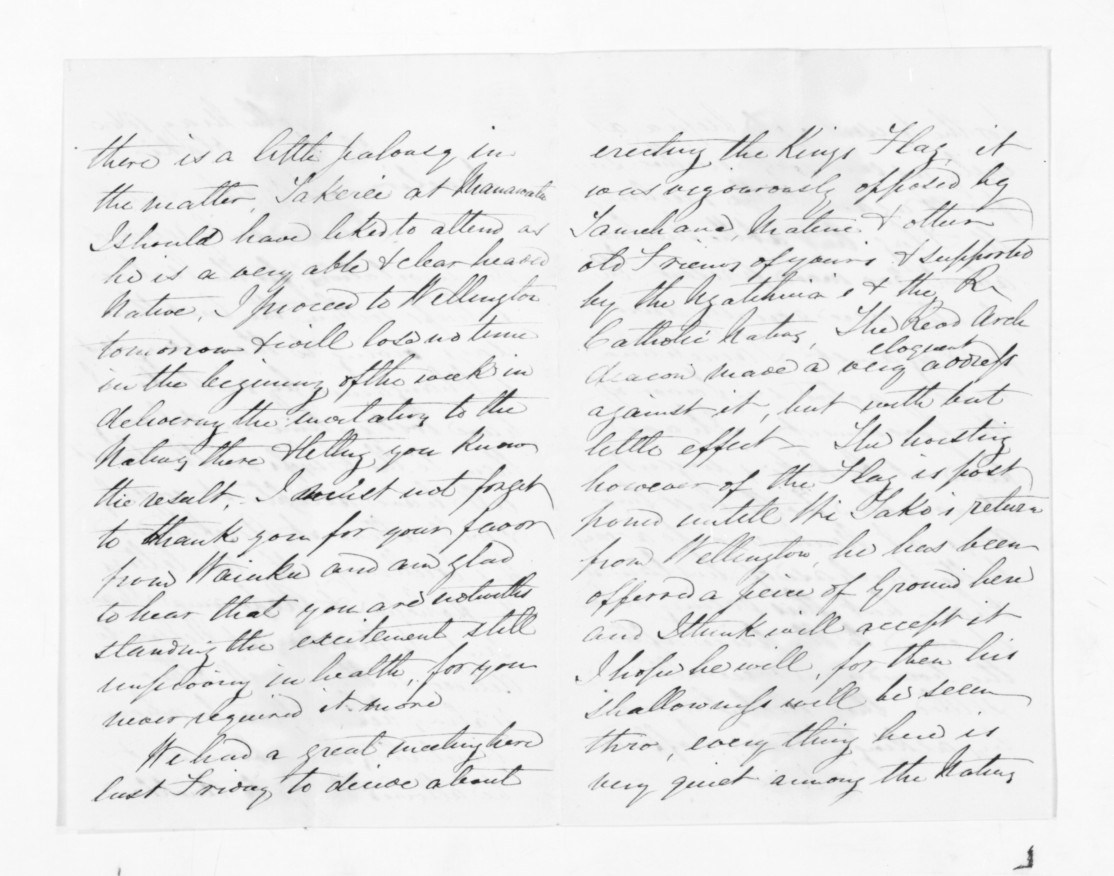 there is a little jealousy in
the matter, Takerei at Manawatu
I should have liked to attend as
he is a very able & clear headed
Native, I proceed to Wellington
tomorrow & will lose no time
in the begining of the week in
delivering the invitations to the
Natives there & letting you know
the result, - I must not forget
to thank you for your favor
from Waiuku and am glad
to hear that you are notwith
standing the excitement still
improving in health, for you
never required it more
We had a great meeting here
last Friday to decide about
erecting the Kings Flag, it
was vigourously opposed by
Tamehana, Matene & other
old Friends of yours & supported
by the & the R
Catholic Natives, The Revd Arch
deacon made a very eloquent address
against it, but with but
little effect - The hoisting
however of the Flag is post
poned untill Wi Tako's return
from Wellington, he has been
offered a peice of Ground here
and I think will accept it
I hope he will, for then his
shallowness will be seen
thro, every thing here is
very quiet among the Natives